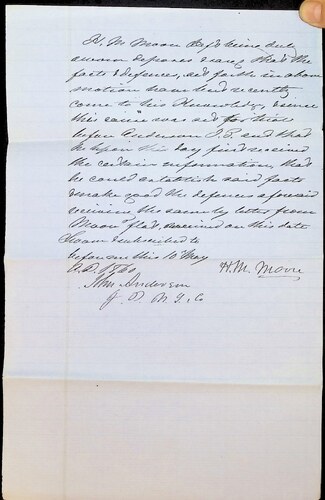 H. M. Moore Deft being duly
sworn deposes & says that the
facts & defences, set forth in above
motion have but recently
come to his Knowledge, & since
this cause was set for trial
before Anderson J.P. and that
he upon this day first received
the certain information, that
he could establish said facts
& make good the defences aforesaid
receiving the same by letter from
Moore Plff, received on this date
Sworn & subscribed to
before me this 10 May
A.D. 1860 H. M. Moore
Anderson
J. P. M. T. Co